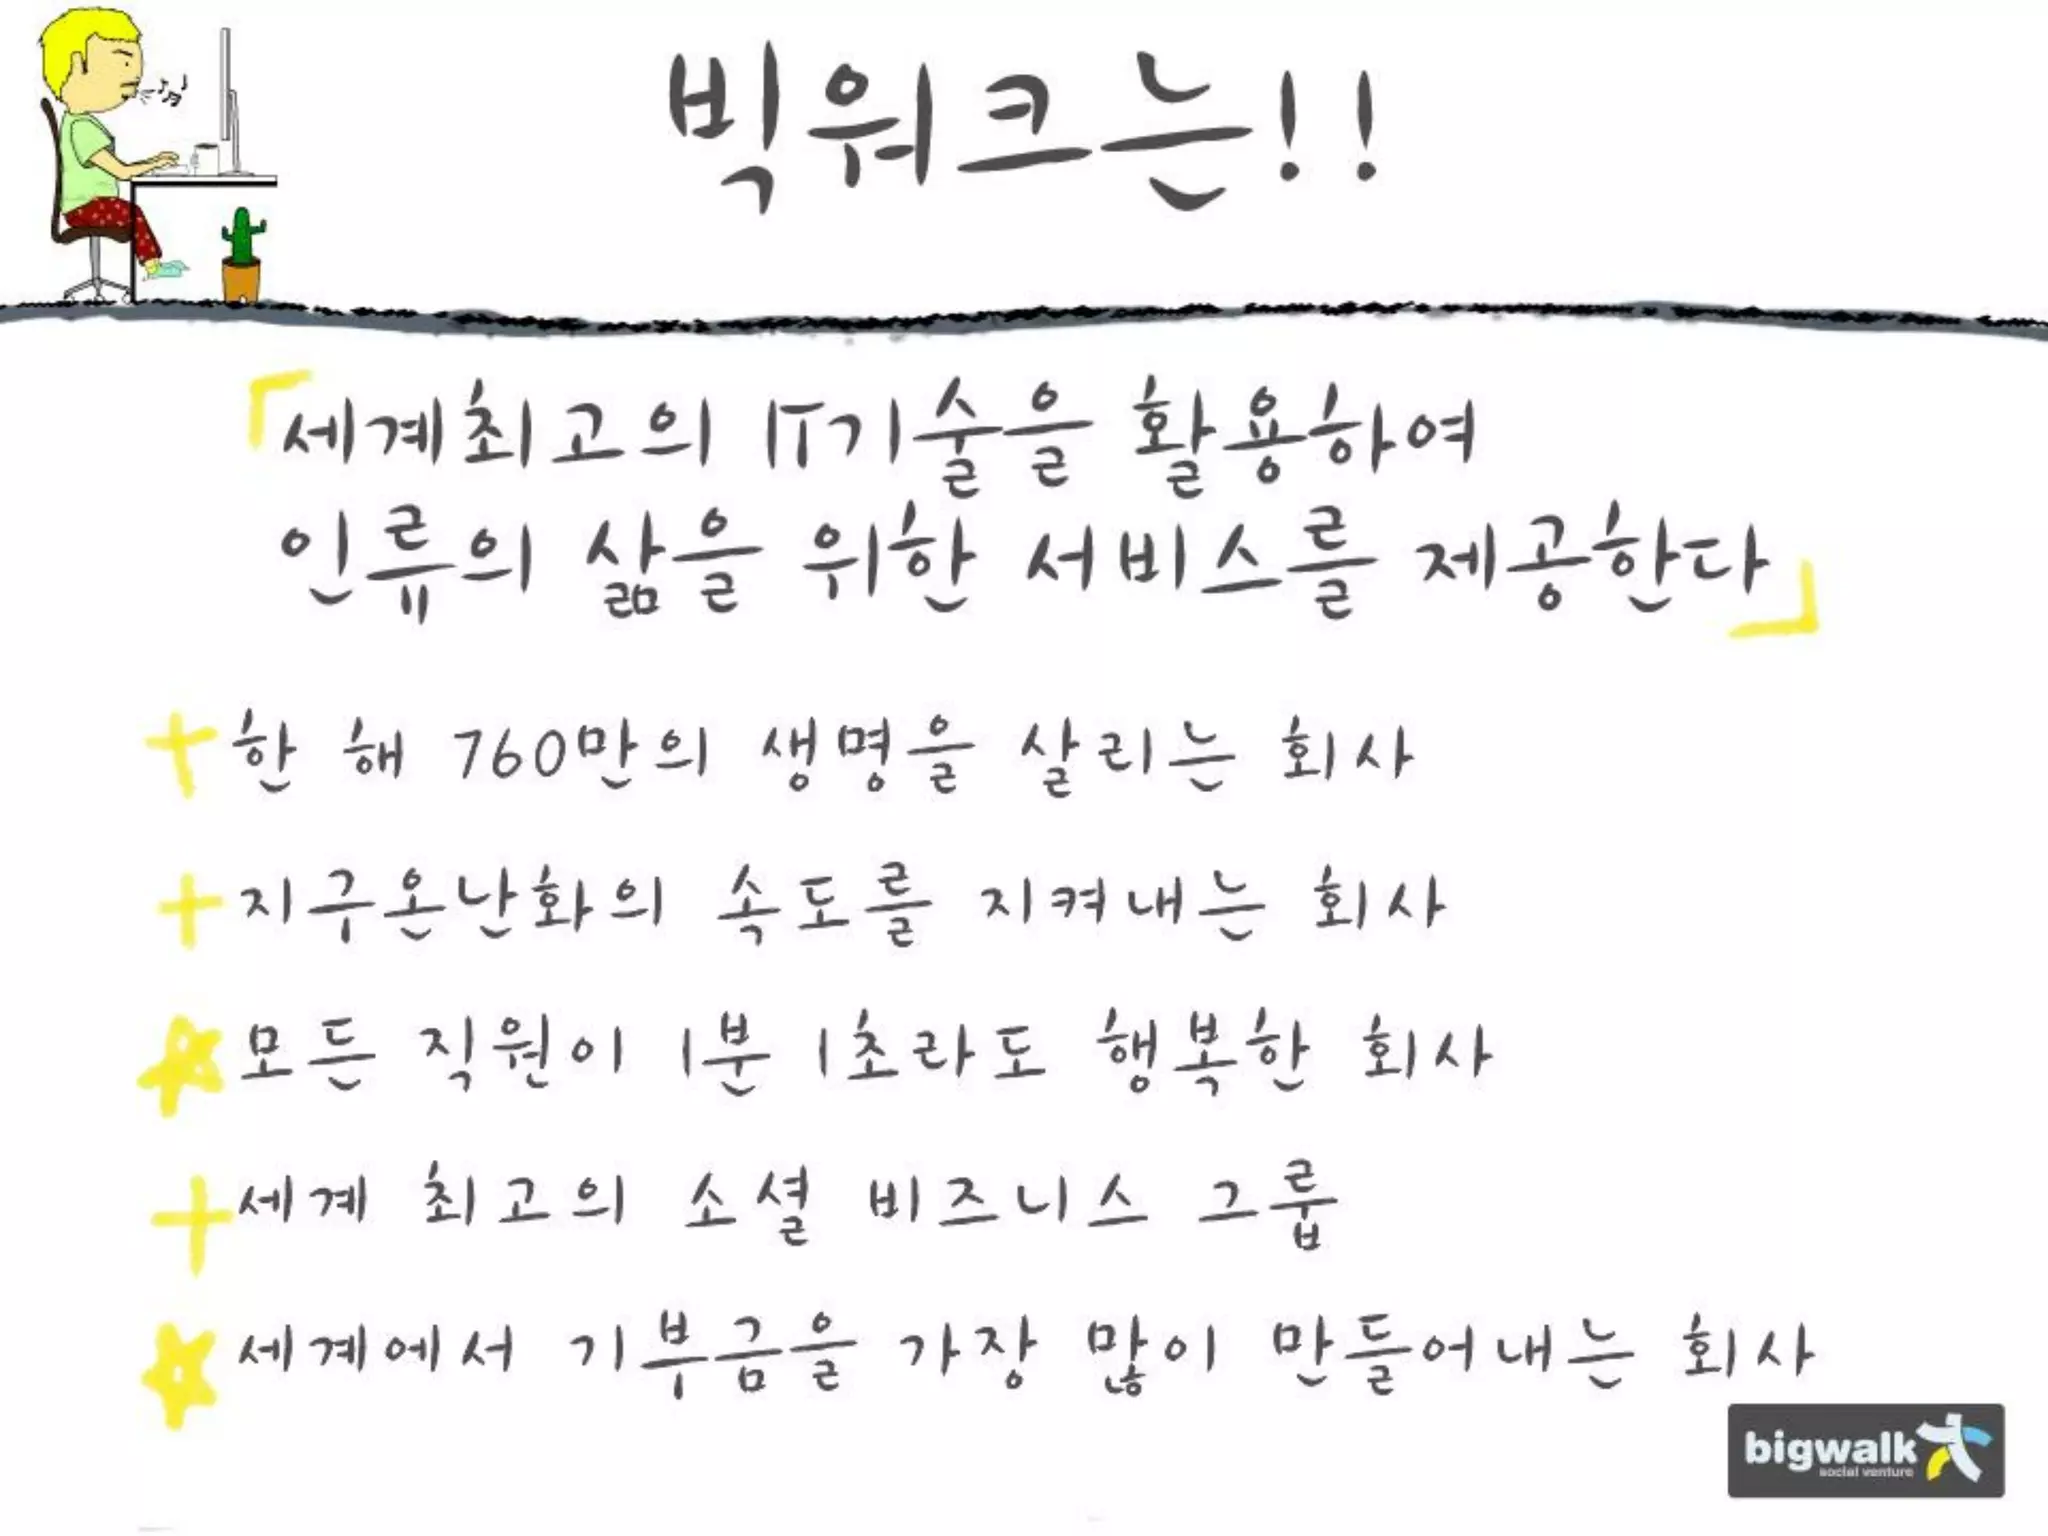 빅워크는!!
「세계최고의 IT기술을 활용하여
인류의 삶을 위한 서비스를 제공한다」
+ 한 해 760만의 생명을 살리는 회사
+ 지구온난화의 속도를 지켜내는 회사
☆ 모든 직원이 1분 1초라도 행복한 회사
+ 세계 최고의 소셜 비즈니스 그룹
☆ 세계에서 기부금을 가장 많이 만들어내는 회사
bigwalk
social venture